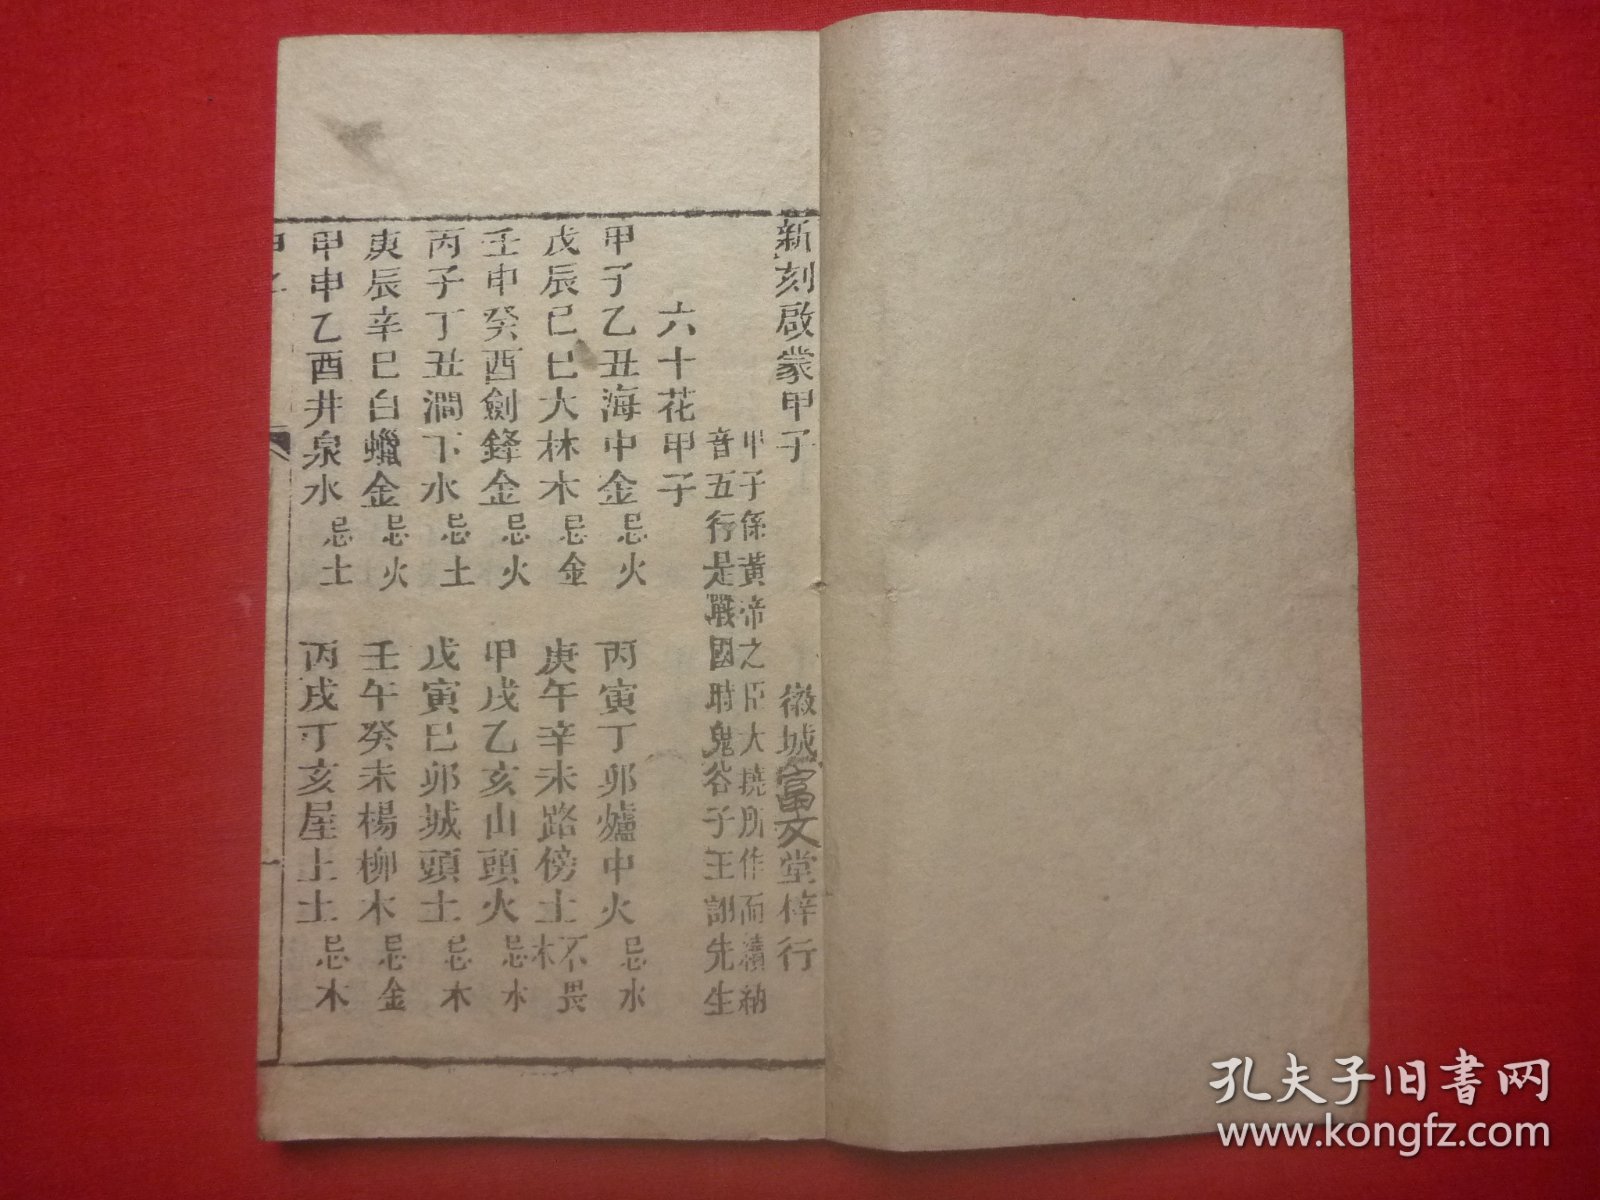 新刻啟蒙甲子 徽城富文堂梓行
甲子係黃帝之臣大撓所作而續納
音五行是戰國時鬼谷子王詡先生
六十花甲子
甲子乙丑海中金 忌火 丙寅丁卯爐中火 忌水
戊辰己巳大林木 忌金 庚午辛未路傍土 不畏木
壬申癸酉劍鋒金 忌火 甲戌乙亥山頭火 忌水
丙子丁丑澗下水 忌土 戊寅己卯城頭土 忌木
庚辰辛巳白蠟金 忌火 壬午癸未楊柳木 忌金
甲申乙酉井泉水 忌土 丙戌丁亥屋上土 忌木
甲子 一
孔夫子旧書网
www.kongfz.com